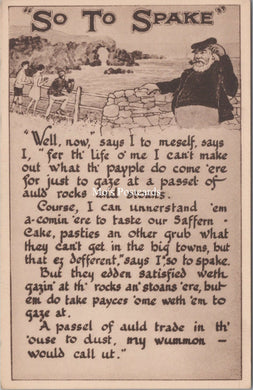 "SO TO SPAKE"
"Well, now," says I to meself, says
I, "fer th' life o' me I can't make
out what th' payple do come 'ere
for just to gaze at a passel of
auld rocks and stoans.
Course, I can unnerstand 'em
a-comin' ere to taste our Saffern-
Cake, pasties an other grub what
they can't get in the big towns, but
that ez defferent," says I, so to spake.
But they edden satisfied weth
gazin' at th' rocks an' stoans 'ere, but
em do take paycces 'ome weth 'em to
gaze at.
A passel of auld trade in th'
'ouse to dust, my wummon -
would call ut."